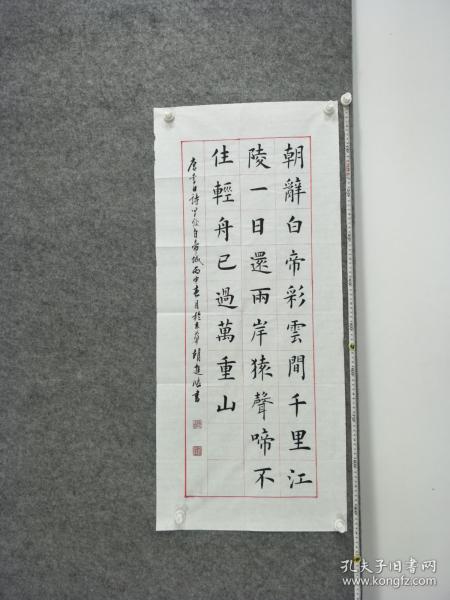 朝辭白帝彩雲間千里江
陵一日還兩岸猿聲啼不
住輕舟已過萬重山
唐李白詩早發白帝城丙申春月於京華胡進海書
孔夫子旧书网
www.kongfz.com